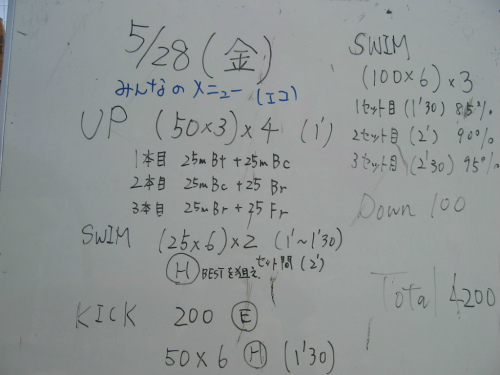 5/28 (金)
みんなのメニュー (エコ)
UP (50×3)×4 (1')
1本目 25m Bt + 25m Bc
2本目 25m Bc + 25 Br
3本目 25m Br + 25 Fr
SWIM (25×6)×2 (1'~1'30)
Ⓗ BESTを狙え. セット間 (2')
KICK 200 Ⓔ
50×6 Ⓗ (1'30)
SWIM
(100×6)×3
1セット目 (1'30) 85%
2セット目 (2') 90%
3セット目 (2'30) 95%
Down 100
Total 4200